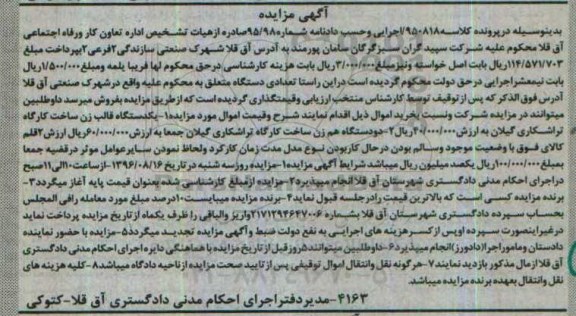 آگهی مزایده
بدینوسیله درپرونده کلاسه۹۵۰۸۱۸/اجرایی وحسب دادنامه شماره۹۵/۹۸صادره ازهیات تشخیص اداره تعاون کار ورفاه اجتماعی
آق قلا محکوم علیه شرکت سپید گران سبزگرگان سامان پورمند به آدرس آق قلا شهرک صنعتی سازندگی۲فرعی۲بپرداخت مبلغ
۱۱۴/۵۷۱/۷۰۳ریال بابت اصل خواسته ونیزمبلغ۳/۰۰۰/۰۰۰ریال بابت هزینه کارشناسی درحق محکوم لها فریبا یلمه ومبلغ۱/۵۰۰/۰۰۰ریال
بابت نیمعشراجرایی درحق دولت محکوم گردیده است دراین راستا تعدادی دستگاه متعلق به محکوم علیه واقع درشهرک صنعتی آق قلا
آدرس فوق الذکر که پس ازتوقیف توسط کارشناس منتخب ارزیابی وقیمتگذاری گردیده است که ازطریق مزایده بفروش میرسد داوطلبین
میتوانند در مزایده شرکت ونسبت بخرید اموال ذیل اقدام نمایند شرح وقیمت اموال مورد مزایده۱-یکدستگاه قالب زن ساخت کارگاه
تراشکاری گیلان به ارزش۴۰/۰۰۰/۰۰۰ریال۲-دودستگاه هم زن ساخت کارگاه تراشکاری گیلان جمعا به ارزش۶۰/۰۰۰/۰۰۰ریال ارزش۲قلم
کالای فوق با وضعیت موجود وسالم بودن درحال کاربودن نوع مدل مدت زمان کارکرد ولحاظ نمودن سایرعوامل موثر درقضیه جمعا
بمبلغ۱۰۰/۰۰۰/۰۰۰ریال یکصد میلیون ریال میباشد شرایط آگهی مزایده۱-مزایده روزسه شنبه در تاریخ ۱۳۹۶/۰۸/۱۶-ازساعت۱۰الی۱۱صبح
دراجرای احکام مدنی دادگستری شهرستان آق قلاانجام میپذیرد۲-مزایده ازمبلغ کارشناسی شده بعنوان قیمت پایه آغاز میگردد۳-
برنده مزایده کسی است که بالاترین قیمت رادرجلسه قبول نماید۴-برنده مزایده میبایست۱۰درصد مبلغ مورد معامله رافی المجلس
بحساب سپرده دادگستری شهرستان آق قلا بشماره ۲۱۷۱۲۹۴۶۴۷۰۰۶واریز والباقی را ظرف یکماه ازتاریخ مزایده پرداخت نماید
درغیراینصورت سپرده اوپس ازکسرهزینه های اجرایی به نفع دولت ضبط وآگهی مزایده تجدید میگردد۵-مزایده با حضور نماینده
دادستان وماموراجرا(دادورز)انجام میپذیرد۶-داوطلبین میتوانند۵روزقبل ازتاریخ مزایده با هماهنگی دایره اجرای احکام مدنی دادگستری
آق قلا ازمال مذکور بازدید نمایند۷-هرگونه نقل وانتقال اموال توقیفی پس ازتایید صحت مزایده ازناحیه دادگاه میباشد۸-کلیه هزینه های
نقل وانتقال بعهده برنده مزایده میباشد.
۴۱۶۳-مدیردفتراجرای احکام مدنی دادگستری آق قلا-کتوکی